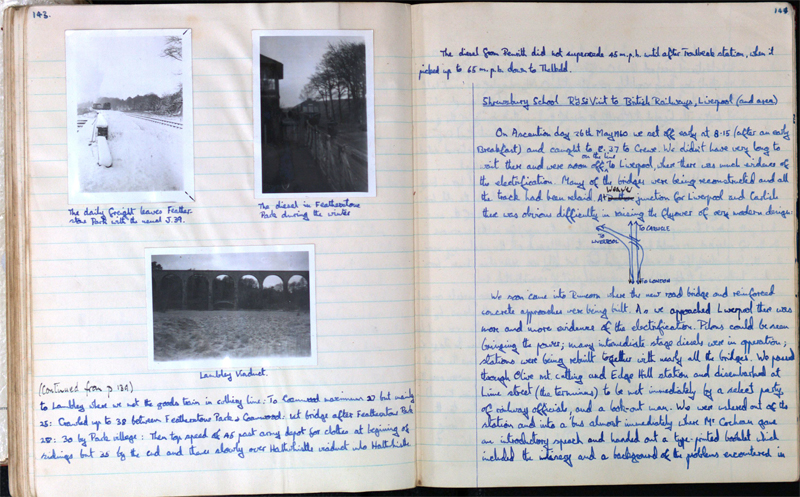 143.
The daily freight leaves Feather-
stone Park with the usual J.39.
The diesel in Featherstone
Park during the winter
Lambley Viaduct.
(Continued from p.
to Lambley where we met the goods train in cutting line: To Coanwood maximum 27 but mainly
25: Crawled up to 38 between Featherstone Park & Coanwood: Let bridge after Featherstone Park
25: 30 by Park village: Then top speed of 45 past army depot for clothes at begining of
sidings but 25 by the end and thence slowly over Haltwhistle viaduct into Haltwhistle
144
The diesel from Penrith did not supercede 45 m.p.h. until after Troutbeck station, when it
picked up to 65 m.p.h. down to Threlkeld.
Shrewsbury School Rly Soc Visit to British Railways, Liverpool (and area)
On Ascention day 26th May 1960 we set off early at 8.15 (after an early
Breakfast) and caught to 8.37 to Crewe. We didn't have very long to
wait there and were soon off on the line to Liverpool, where there was much evidence of
the electrification. Many of the bridges were being reconstructed and all
the track had been relaid. At Weaver junction for Liverpool and Carlisle
there was obvious difficulty in raising the flyover of very modern design.
TO CARLISLE
TO LIVERPOOL
TO LONDON
We soon came into Runcorn where the new road bridge and reinforced
concrete approaches were being built. As we approached Liverpool there was
more and more evidence of the electrification. Pilons could be seen
bringing the power; many intermediate stage diesels were in operation;
stations were being rebuilt together with nearly all the bridges. We passed
through Olive mt cutting and Edge Hill station and disembarked at
Lime street (the terminus) to be met immediately by a select party
of railway officials, and a look-out man. We were ushered out of the
station and into a bus almost immediately where Mr Cochran gave
an introductory speech and handed out a type-printed booklet which
included the itinery and a background of the problems encountered in